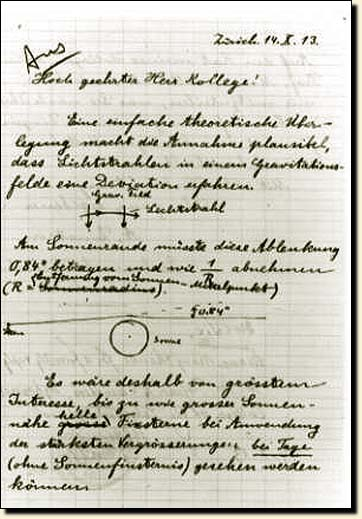 Zürich. 14. X. 13.
Hoch geehrter Herr Kollege!
Eine einfache theoretische Über-
legung macht die Annahme plausibel,
dass Lichtstrahlen in einem Gravitations-
felde eine Deviation erfahren.
Grav. Feld
Lichtstrahl
Am Sonnenrande müsste diese Ablenkung
0,84" betragen und wie 1/R abnehmen
(R = Sonnenradius). (Entfernung vom Sonnen-Mittelpunkt)
0.84"
Stern
Sonne
Es wäre deshalb von grösstem
Interesse, bis zu wie grosser Sonnen-
nähe grosse helle Fixsterne bei Anwendung
der stärksten Vergrösserungen bei Tage
(ohne Sonnenfinsternis) gesehen werden
können.